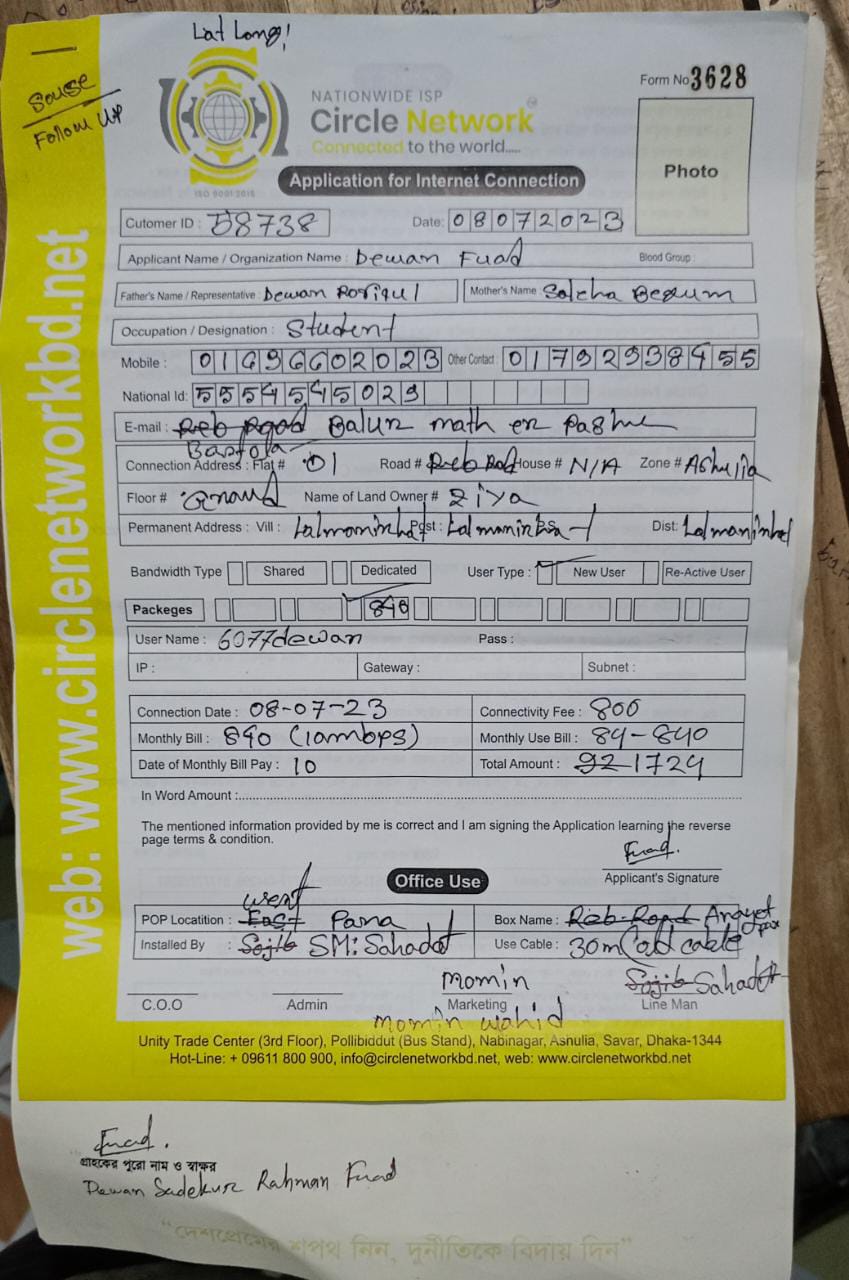 Lat Long!
Souse
Follow UP
Form No 3628
NATIONWIDE ISP
Circle Network
Connected to the world.....
ISO 9001:2015
Application for Internet Connection
Photo
web: www.circlenetworkbd.net
Cutomer ID : 58738
Date: 08072023
Applicant Name / Organization Name : Dewan Fuad
Blood Group :
Father's Name / Representative : Dewan Rofiqul
Mother's Name : Soleha Begum
Occupation / Designation : Student
Mobile : 01696602023 Other Contact : 01792938455
National Id: 5554545029
E-mail : Reb Road Balur math er Pashe
Bastola
Connection Address : Flat # 01 Road # Reb Road House # N/A Zone # Ashulia
Floor # Ground Name of Land Owner # Ziya
Permanent Address : Vill : Lalmonirhat Post : Lalmonirhat Dist: Lalmanirhat
Bandwidth Type Shared Dedicated User Type : New User Re-Active User
Packeges 840
User Name : 6077dewan Pass :
IP : Gateway : Subnet :
Connection Date : 08-07-23 Connectivity Fee : 800
Monthly Bill : 840 (10mbps) Monthly Use Bill : 84-840
Date of Monthly Bill Pay : 10 Total Amount : 92 1724
In Word Amount :
The mentioned information provided by me is correct and I am signing the Application learning the reverse
page terms & condition.
Fuad.
Applicant's Signature
Office Use
West
POP Locatition : East Para Box Name : Reb-Road
Installed By : Sojib SM: Sahadot Use Cable : 30m Old cable
Momin Sojib Sahadot
C.O.O Admin Marketing Line Man
momin wahid
Unity Trade Center (3rd Floor), Pollibiddut (Bus Stand), Nabinagar, Ashulia, Savar, Dhaka-1344
Hot-Line: + 09611 800 900, info@circlenetworkbd.net, web: www.circlenetworkbd.net
Fuad.
গ্রাহকের পুরো নাম ও স্বাক্ষর
Dewan Sadekur Rahman Fuad
“দেশপ্রেমের শপথ নিন, দুর্নীতিকে বিদায় দিন”